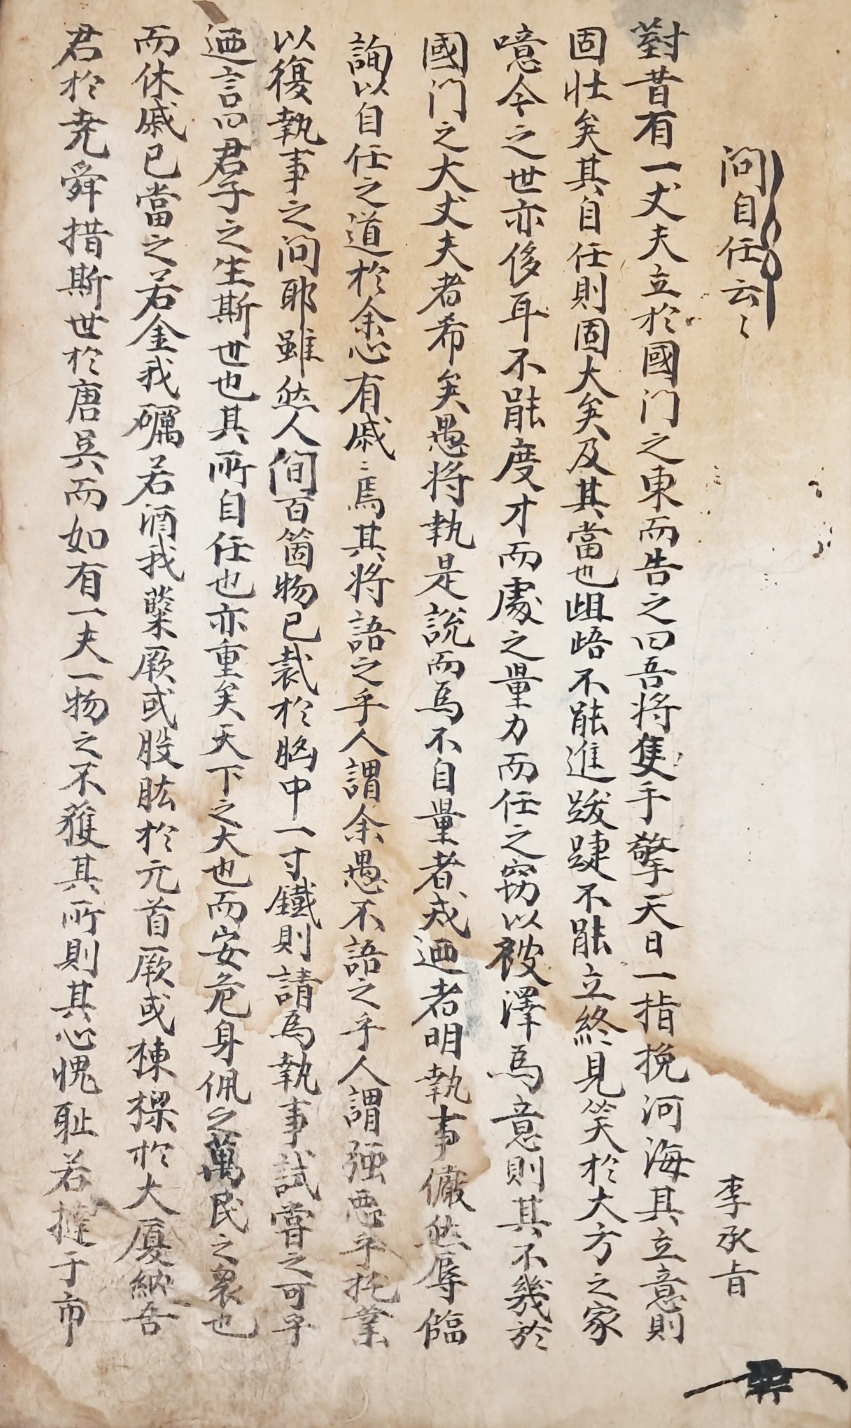 問自任云〻
李承旨
對昔有一丈夫立於國门之東而告之曰吾將隻手擎天日一指挽河海其立意則
固壮矣其自任則固大矣及其當也齟齬不能進跋踕不能立終見笑於大方之家
噫今之世亦侈耳不能度才而處之量力而任之窃以被澤爲意則其不幾於
國门之大丈夫者希矣愚將執是說而爲不自量者戒廼者明執事儼然辱臨
詢以自任之道於余心有戚〻焉其將語之乎人謂余愚不語之乎人謂强愚乎抚業
以復執事之问耶雖然人间百箇物已裁於胸中一寸鐵則請爲執事試嘗之可乎
廼言曰君子之生斯世也其所自任也亦重矣天下之大也而安危身佩之萬民之衆也
而休戚已當之若金我礪若酒我蘖厥或股肱於元首厥或棟樑於大厦納吾
君於尭舜措斯世於唐吳而如有一夫一物之不獲其所則其心愧耻若撻于市